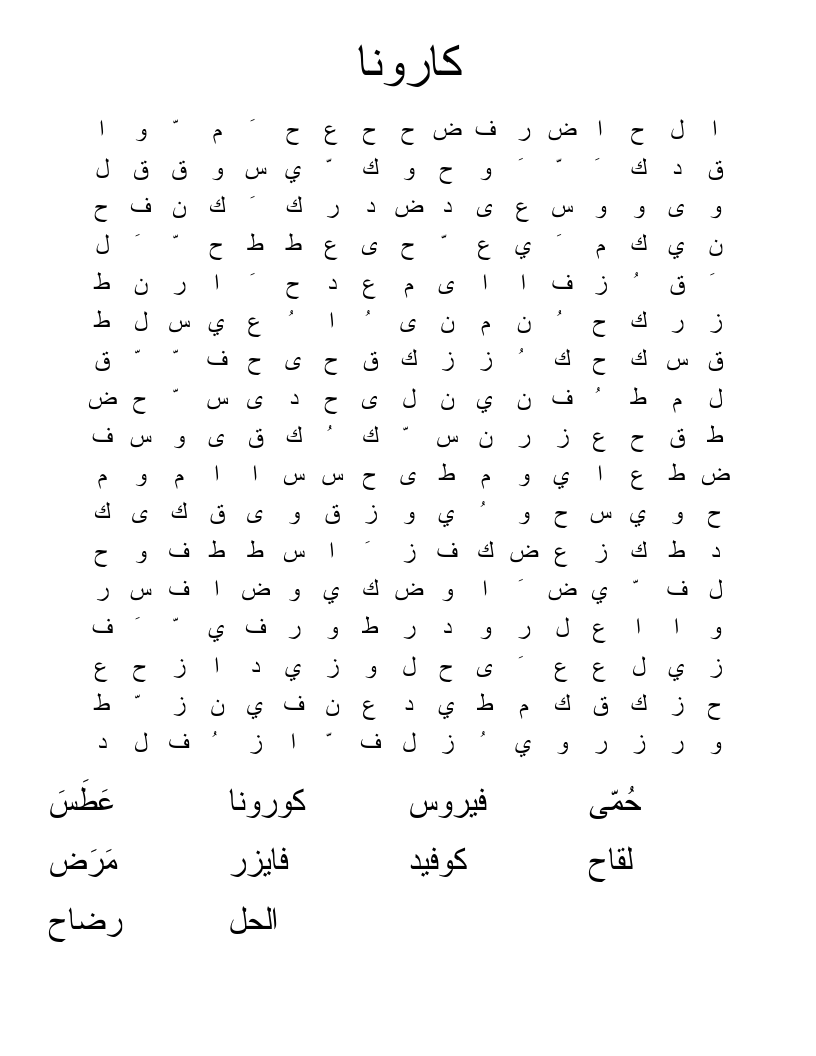 كارونا
ا ل ح ا ض ر ف ض ح ح ع ح َ م ّ و ا
ق د ك َ ّ َ و ح و ك ّ ي س و ق ق ل
و ى و و س ع ى د ض د ر ك َ ك ن ف ح
ن ي ك م َ ي ع ّ ح ى ع ط ط ح ّ َ ل
َ ق ُ ز ف ا ا ى م ع د ح َ ا ر ن ط
ز ر ك ح ُ ن م ن ى ُ ا ُ ع ي س ل ط
ق س ك ح ك ُ ز ز ك ق ح ى ح ف ّ ّ ق
ل م ط ُ ف ن ي ن ل ى ح د ى س ّ ح ض
ط ق ح ع ز ر ن س ّ ك ُ ك ق ى و س ف
ض ط ع ا ي و م ط ى ح س س ا ا م و م
ح و ي س ح و ُ ي و ز ق و ى ق ك ى ك
د ط ك ز ع ض ك ف ز َ ا س ط ط ف و ح
ل ف ّ ي ض َ ا و ض ك ي و ض ا ف س ر
و ا ا ع ل ر و د ر ط و ر ف ي ّ َ ف
ز ي ل ع ع َ ى ح ل و ز ي د ا ز ح ع
ح ز ك ق ك م ط ي د ع ن ف ي ن ز ّ ط
و ر ز ر و ي ُ ز ل ف ّ ا ز ُ ف ل د
حُمّى فيروس كورونا عَطَسَ
لقاح كوفيد فايزر مَرَض
الحل رضاح